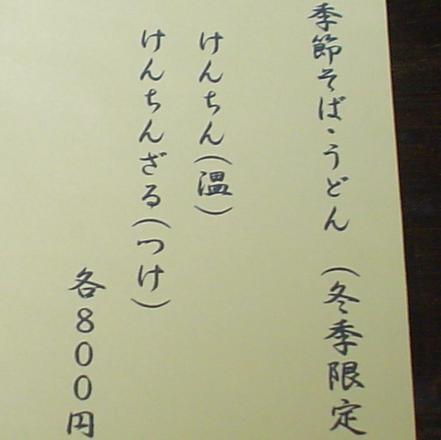 季節そば・うどん（冬季限定
けんちん（温）
けんちんざる（つけ）
各800円